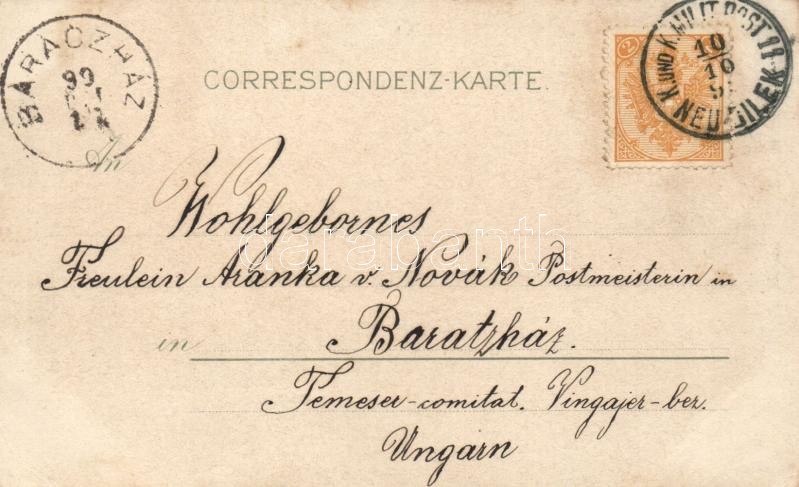 BARACZHÁZ
99
CORRESPONDENZ-KARTE.
2
K. UND K. MILIT. POST 11
10
NEU-BILEK
An
Wohlgebornes
Freulein Aranka v. Novák Postmeisterin in
in Baratzház.
Temeser-comitat. Vingajer-bez.
Ungarn
darabanth